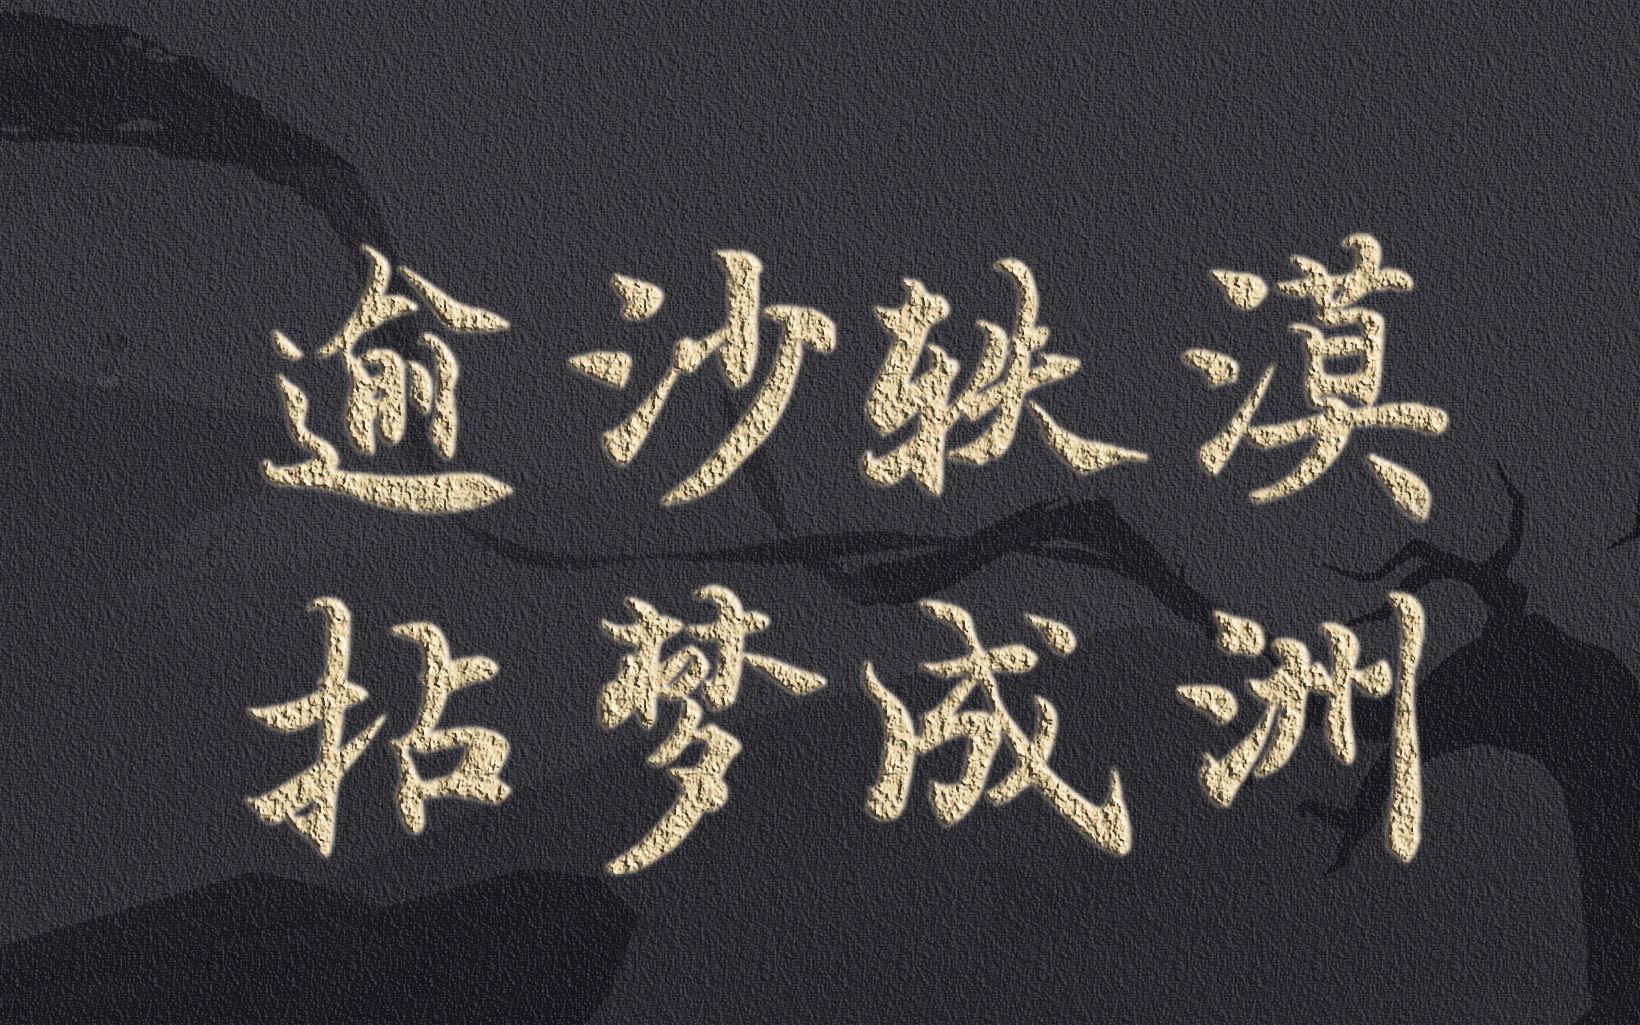 逾沙轶漠
拓梦成洲